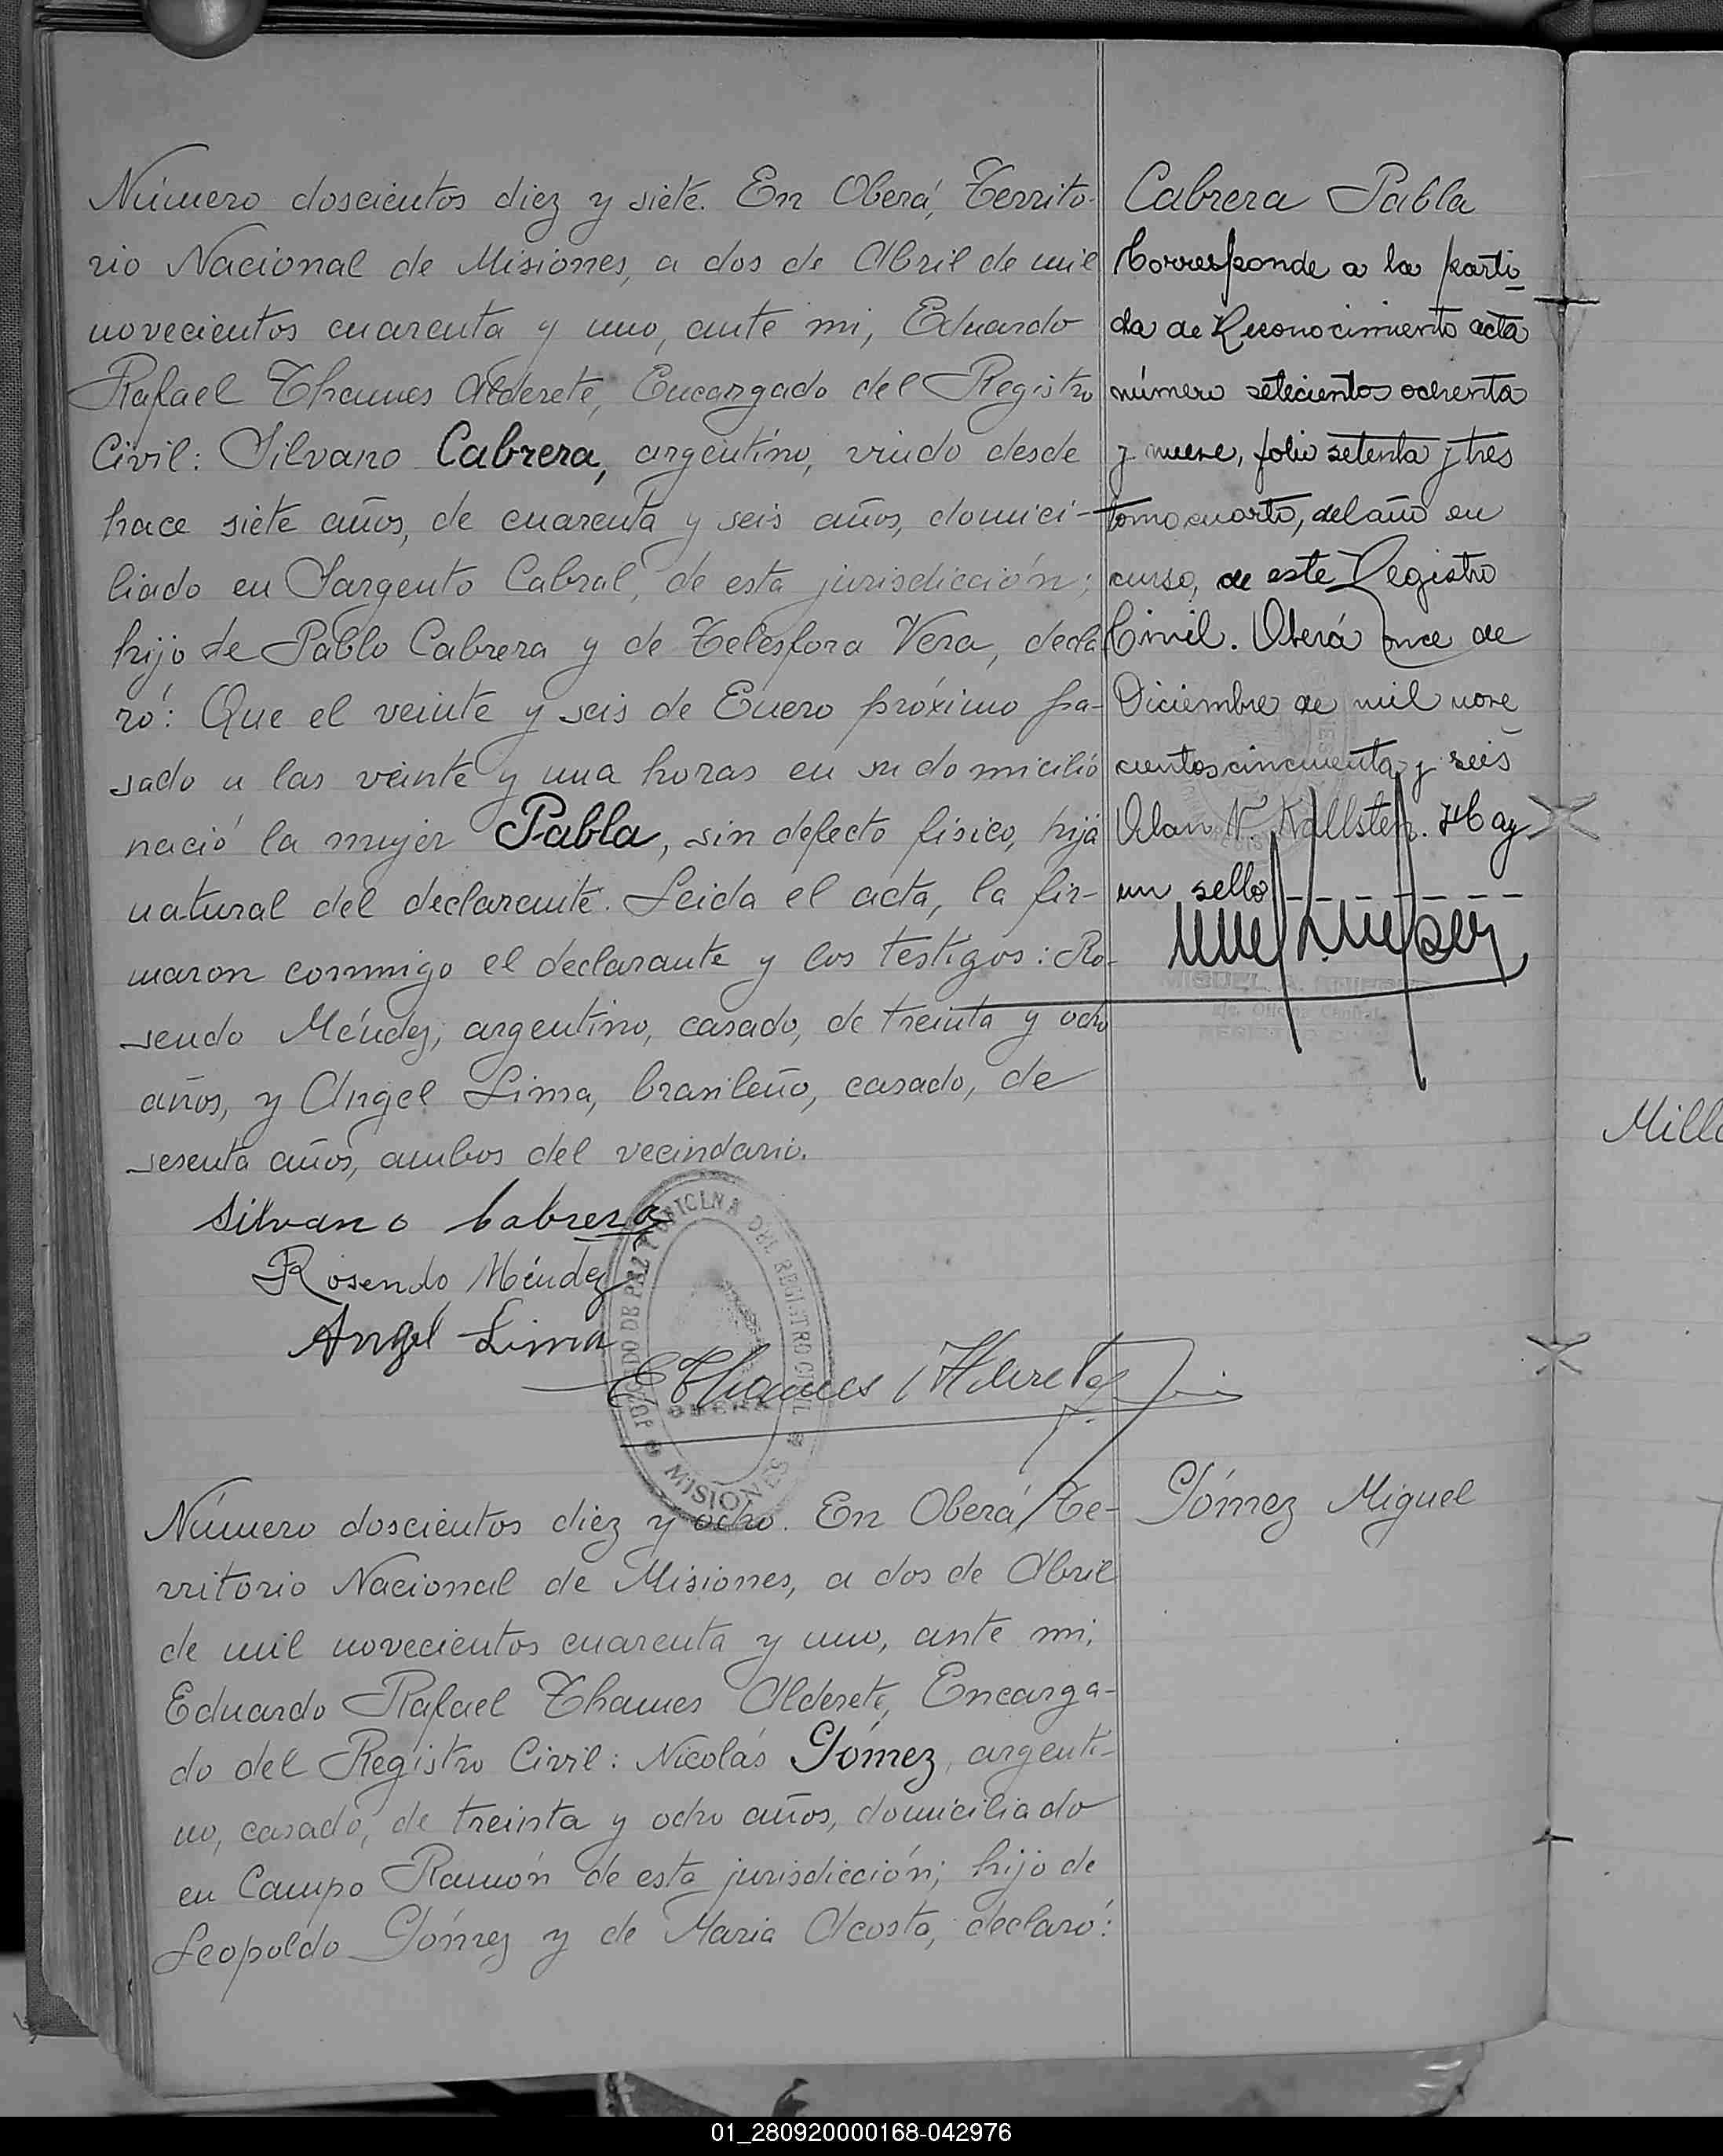 Número doscientos diez y siete. En Oberá, Territo-
rio Nacional de Misiones, a dos de Abril de mil
novecientos cuarenta y uno, ante mi, Eduardo
Rafael Thames Alderete, Encargado del Registro
Civil: Silvano Cabrera, argentino, viudo desde
hace siete años, de cuarenta y seis años, domici-
liado en Sargento Cabral, de esta jurisdicción;
hijo de Pablo Cabrera y de Telésfora Vera, decla-
ró: Que el veinte y seis de Enero próximo pa-
sado a las veinte y una horas en su domicilio
nació la mujer Pabla, sin defecto físico, hija
natural del declarante. Leida el acta, la fir-
maron conmigo el declarante y los testigos: Ro-
sendo Méndez, argentino, casado, de treinta y ocho
años, y Angel Lima, brasileño, casado, de
sesenta años, ambos del vecindario.
Silvano Cabrera
Rosendo Méndez
Angel Lima
EThames Alderete
JUZGADO DE PAZ Y OFICINA DEL REGISTRO CIVIL
OBERA
MISIONES
Cabrera Pabla
Corresponde a la parti
da de Reconocimiento acta
número setecientos ochenta
y nueve, folio setenta y tres
tomo cuarto, del año en
curso, de este Registro
Civil. Oberá once de
Diciembre de mil nove
cientos cincuenta y seis
Olan N. Kallsten. Hay
un sello
MIGUEL A.
Número doscientos diez y ocho. En Oberá, Te-
rritorio Nacional de Misiones, a dos de Abril
de mil novecientos cuarenta y uno, ante mi,
Eduardo Rafael Thames Alderete, Encarga-
do del Registro Civil: Nicolás Gómez, argenti-
no, casado, de treinta y ocho años, domiciliado
en Campo Ramón de esta jurisdicción; hijo de
Leopoldo Gómez y de Maria Acosta, declaró:
Gómez Miguel
Mill
01_280920000168-042976